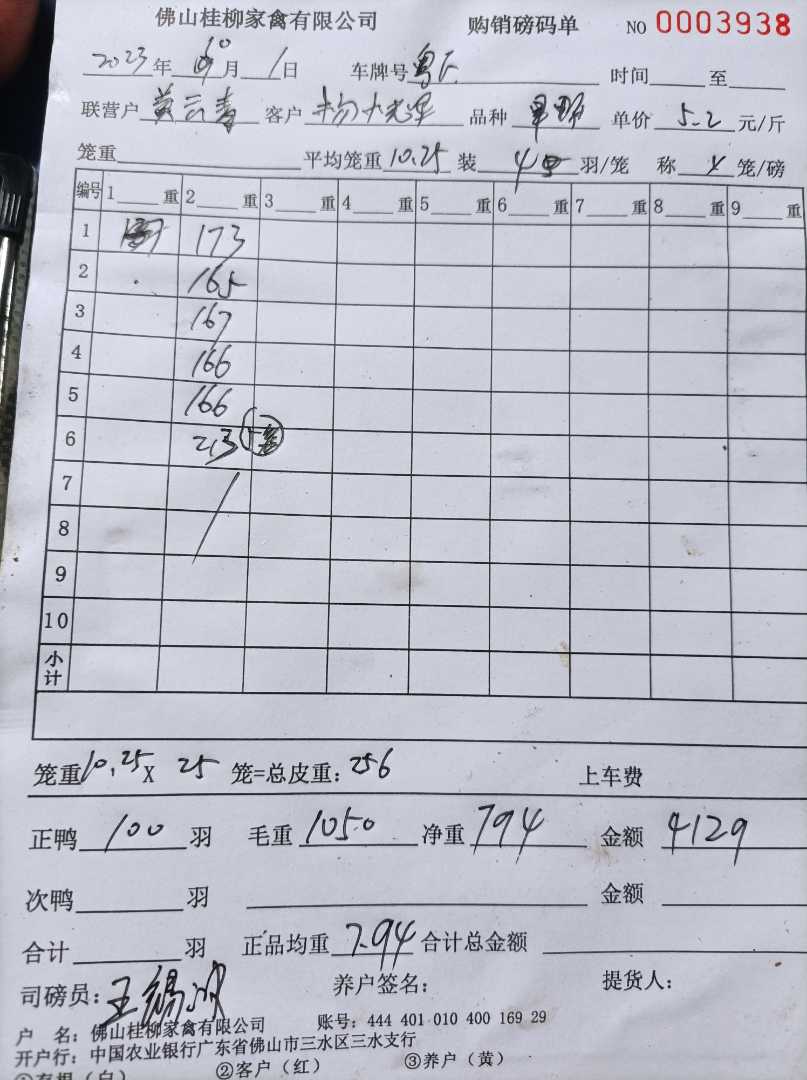 佛山桂柳家禽有限公司 购销磅码单 NO 0003938
2023年 10月 1日 车牌号 粤 时间 至
联营户 黄云青 客户 品种 单价 5.2 元/斤
笼重 平均笼重 10.25 装 4 羽/笼 称 笼/磅
编号 1 重 2 重 3 重 4 重 5 重 6 重 7 重 8 重 9 重
1 173
2 165
3 167
4 166
5 166
6 213
7
8
9
10
小计
笼重 10.25 X 25 笼=总皮重: 256 上车费
正鸭 100 羽 毛重 1050 净重 794 金额 4129
次鸭 羽 金额
合计 羽 正品均重 7.94 合计总金额
司磅员: 王锡 养户签名: 提货人:
户 名: 佛山桂柳家禽有限公司 账号: 444 401 010 400 169 29
开户行: 中国农业银行广东省佛山市三水区三水支行
①存根（白） ②客户（红） ③养户（黄）